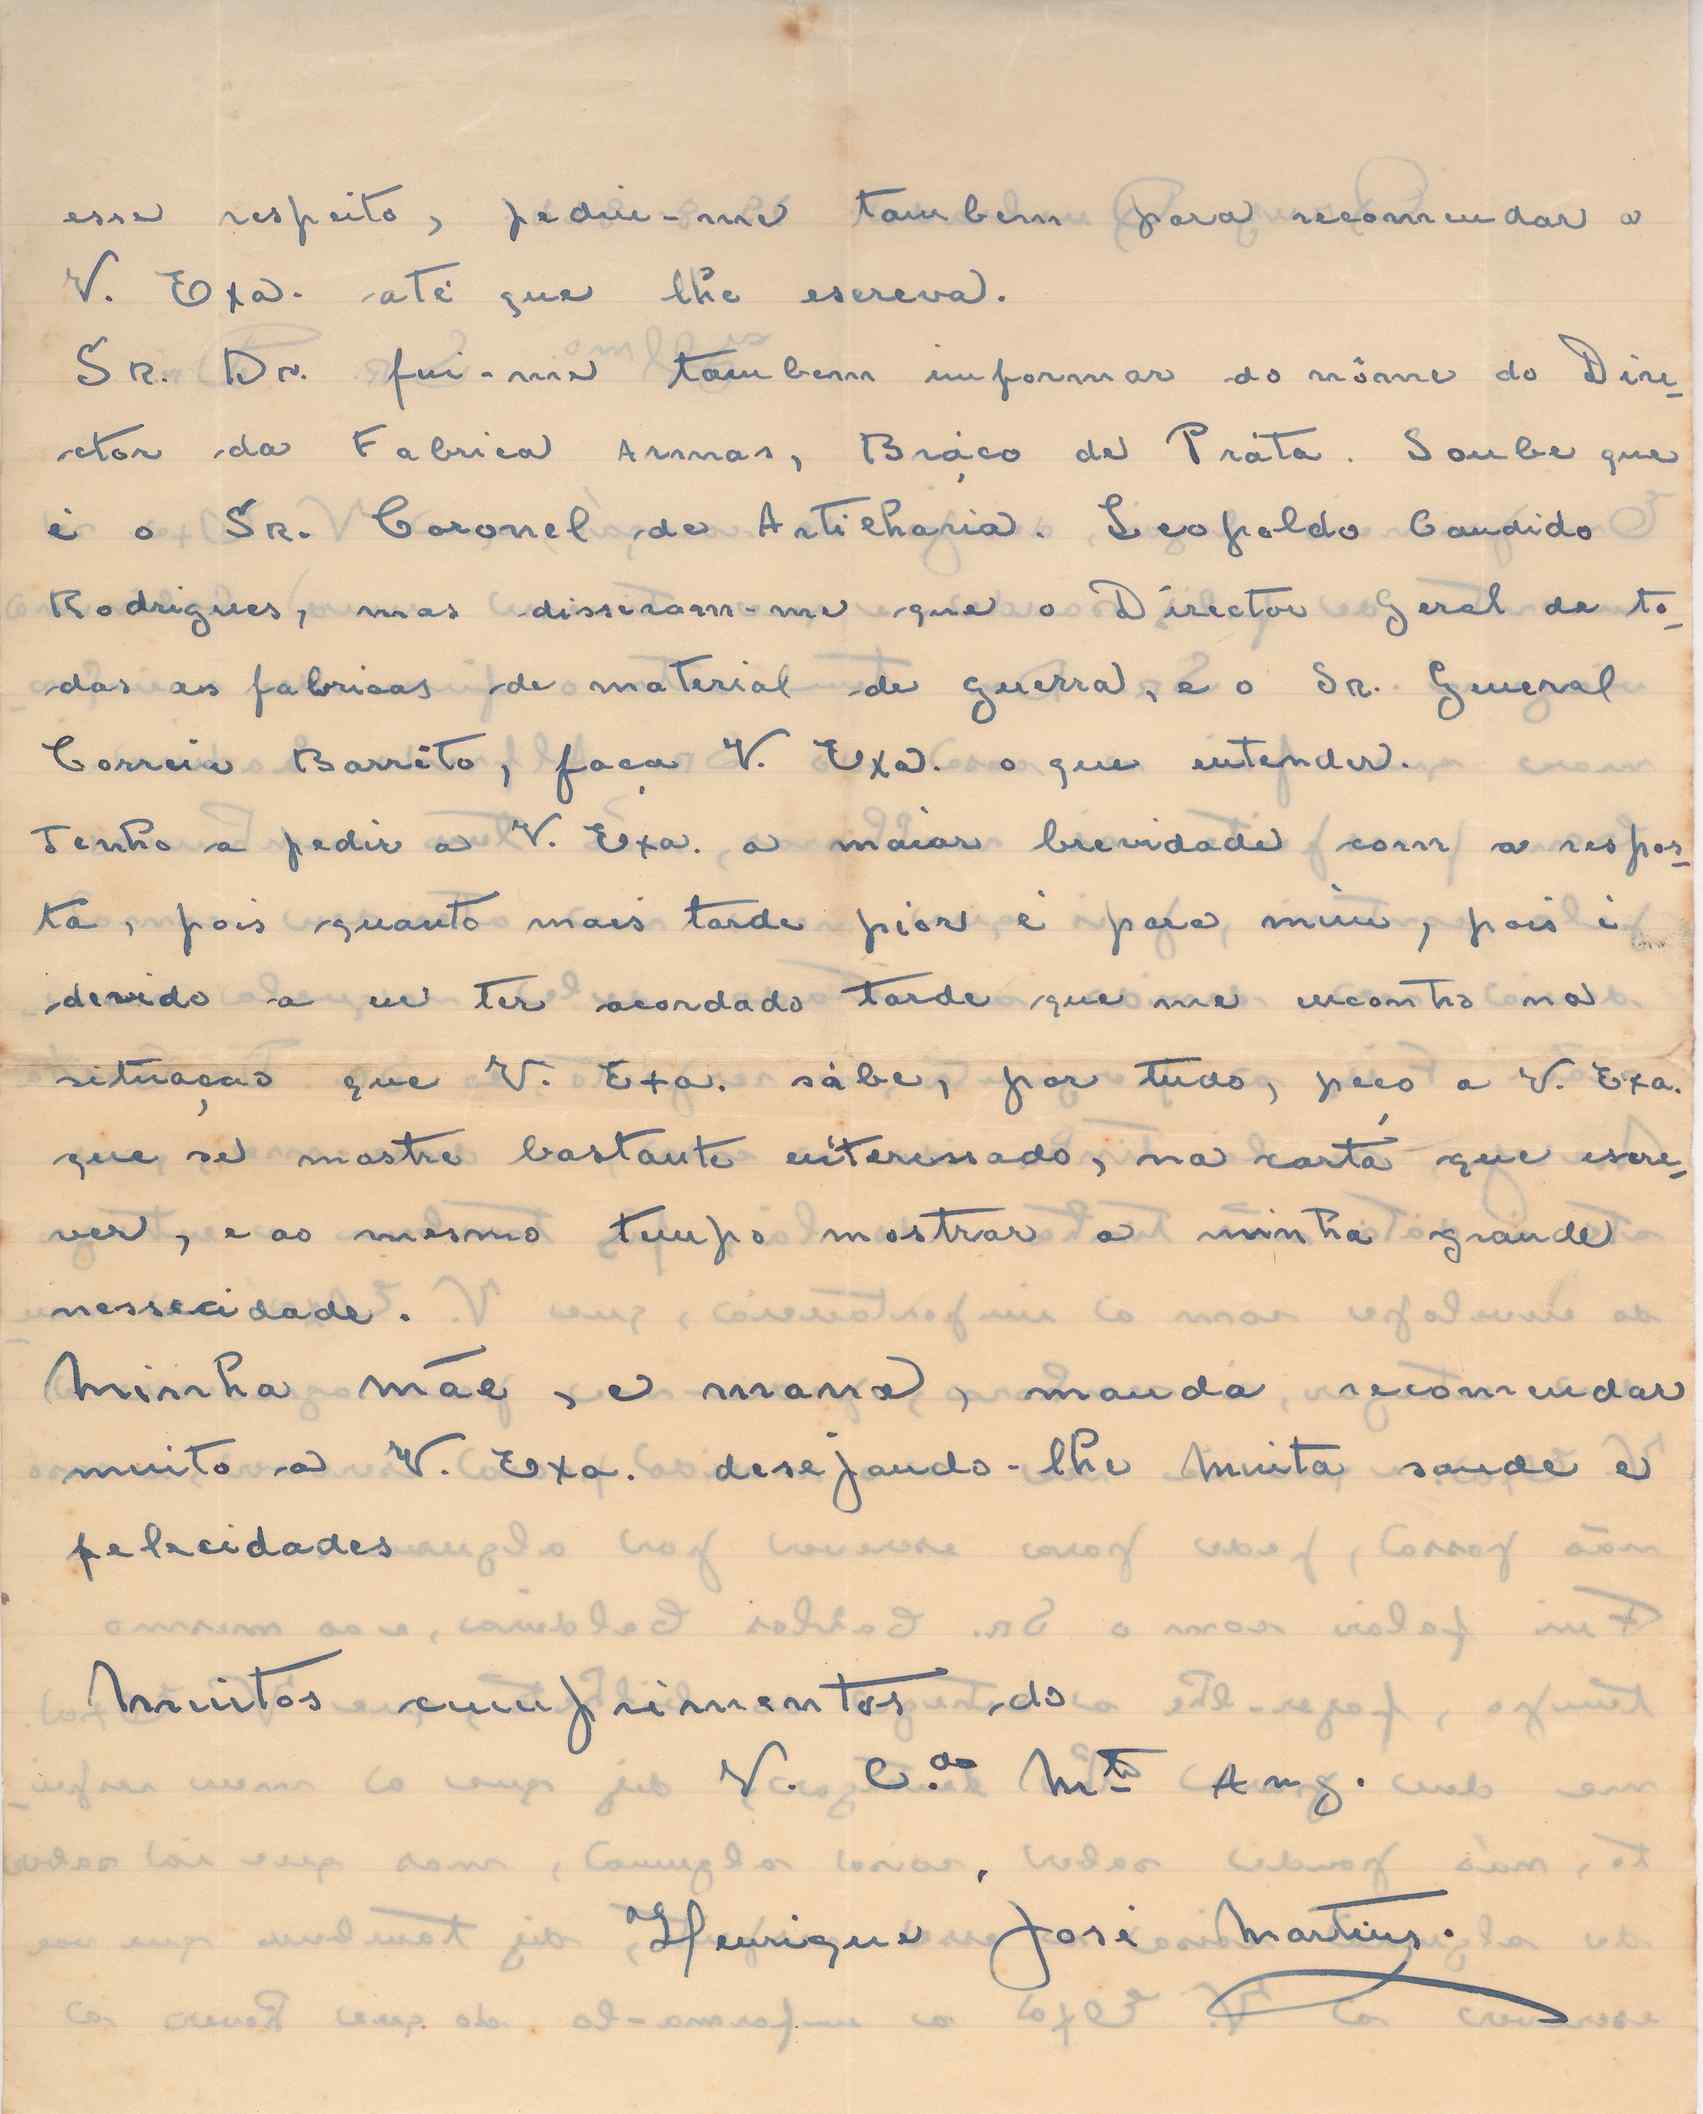 esse respeito, pediu-me tambem para recomendar a
V. Exa. até que lhe escreva.
Sr. Dr. fui-me tambem informar do nôme do Dire-
ctor da Fabrica Armas, Braço de Prata. Soube que
é o Sr. Coronel de Artilharia. Leopoldo Candido
Rodrigues, mas disseram-me que o Director Geral de to-
das as fabricas de material de guerra, é o Sr. General
Correia Barrêto, faça V. Exa. o que entender.
Tenho a pedir a V. Exa. a maior brevidade com a respos-
ta, pois quanto mais tarde pior é para mim, pois é
devido a eu ter acordado tarde que me encontro na
situação que V. Exa. sábe, por tudo, peço a V. Exa.
que se mostre bastante interessado, na carta que escre-
ver, e ao mesmo tempo mostrar a minha grande
nessecidade.
Minha mãe, e mana, manda recomendar
muito a V. Exa. desejando-lhe muita saude e
felecidades
Muitos cumprimentos do
V. C.do Mto Amg.
Henrique José Martins.